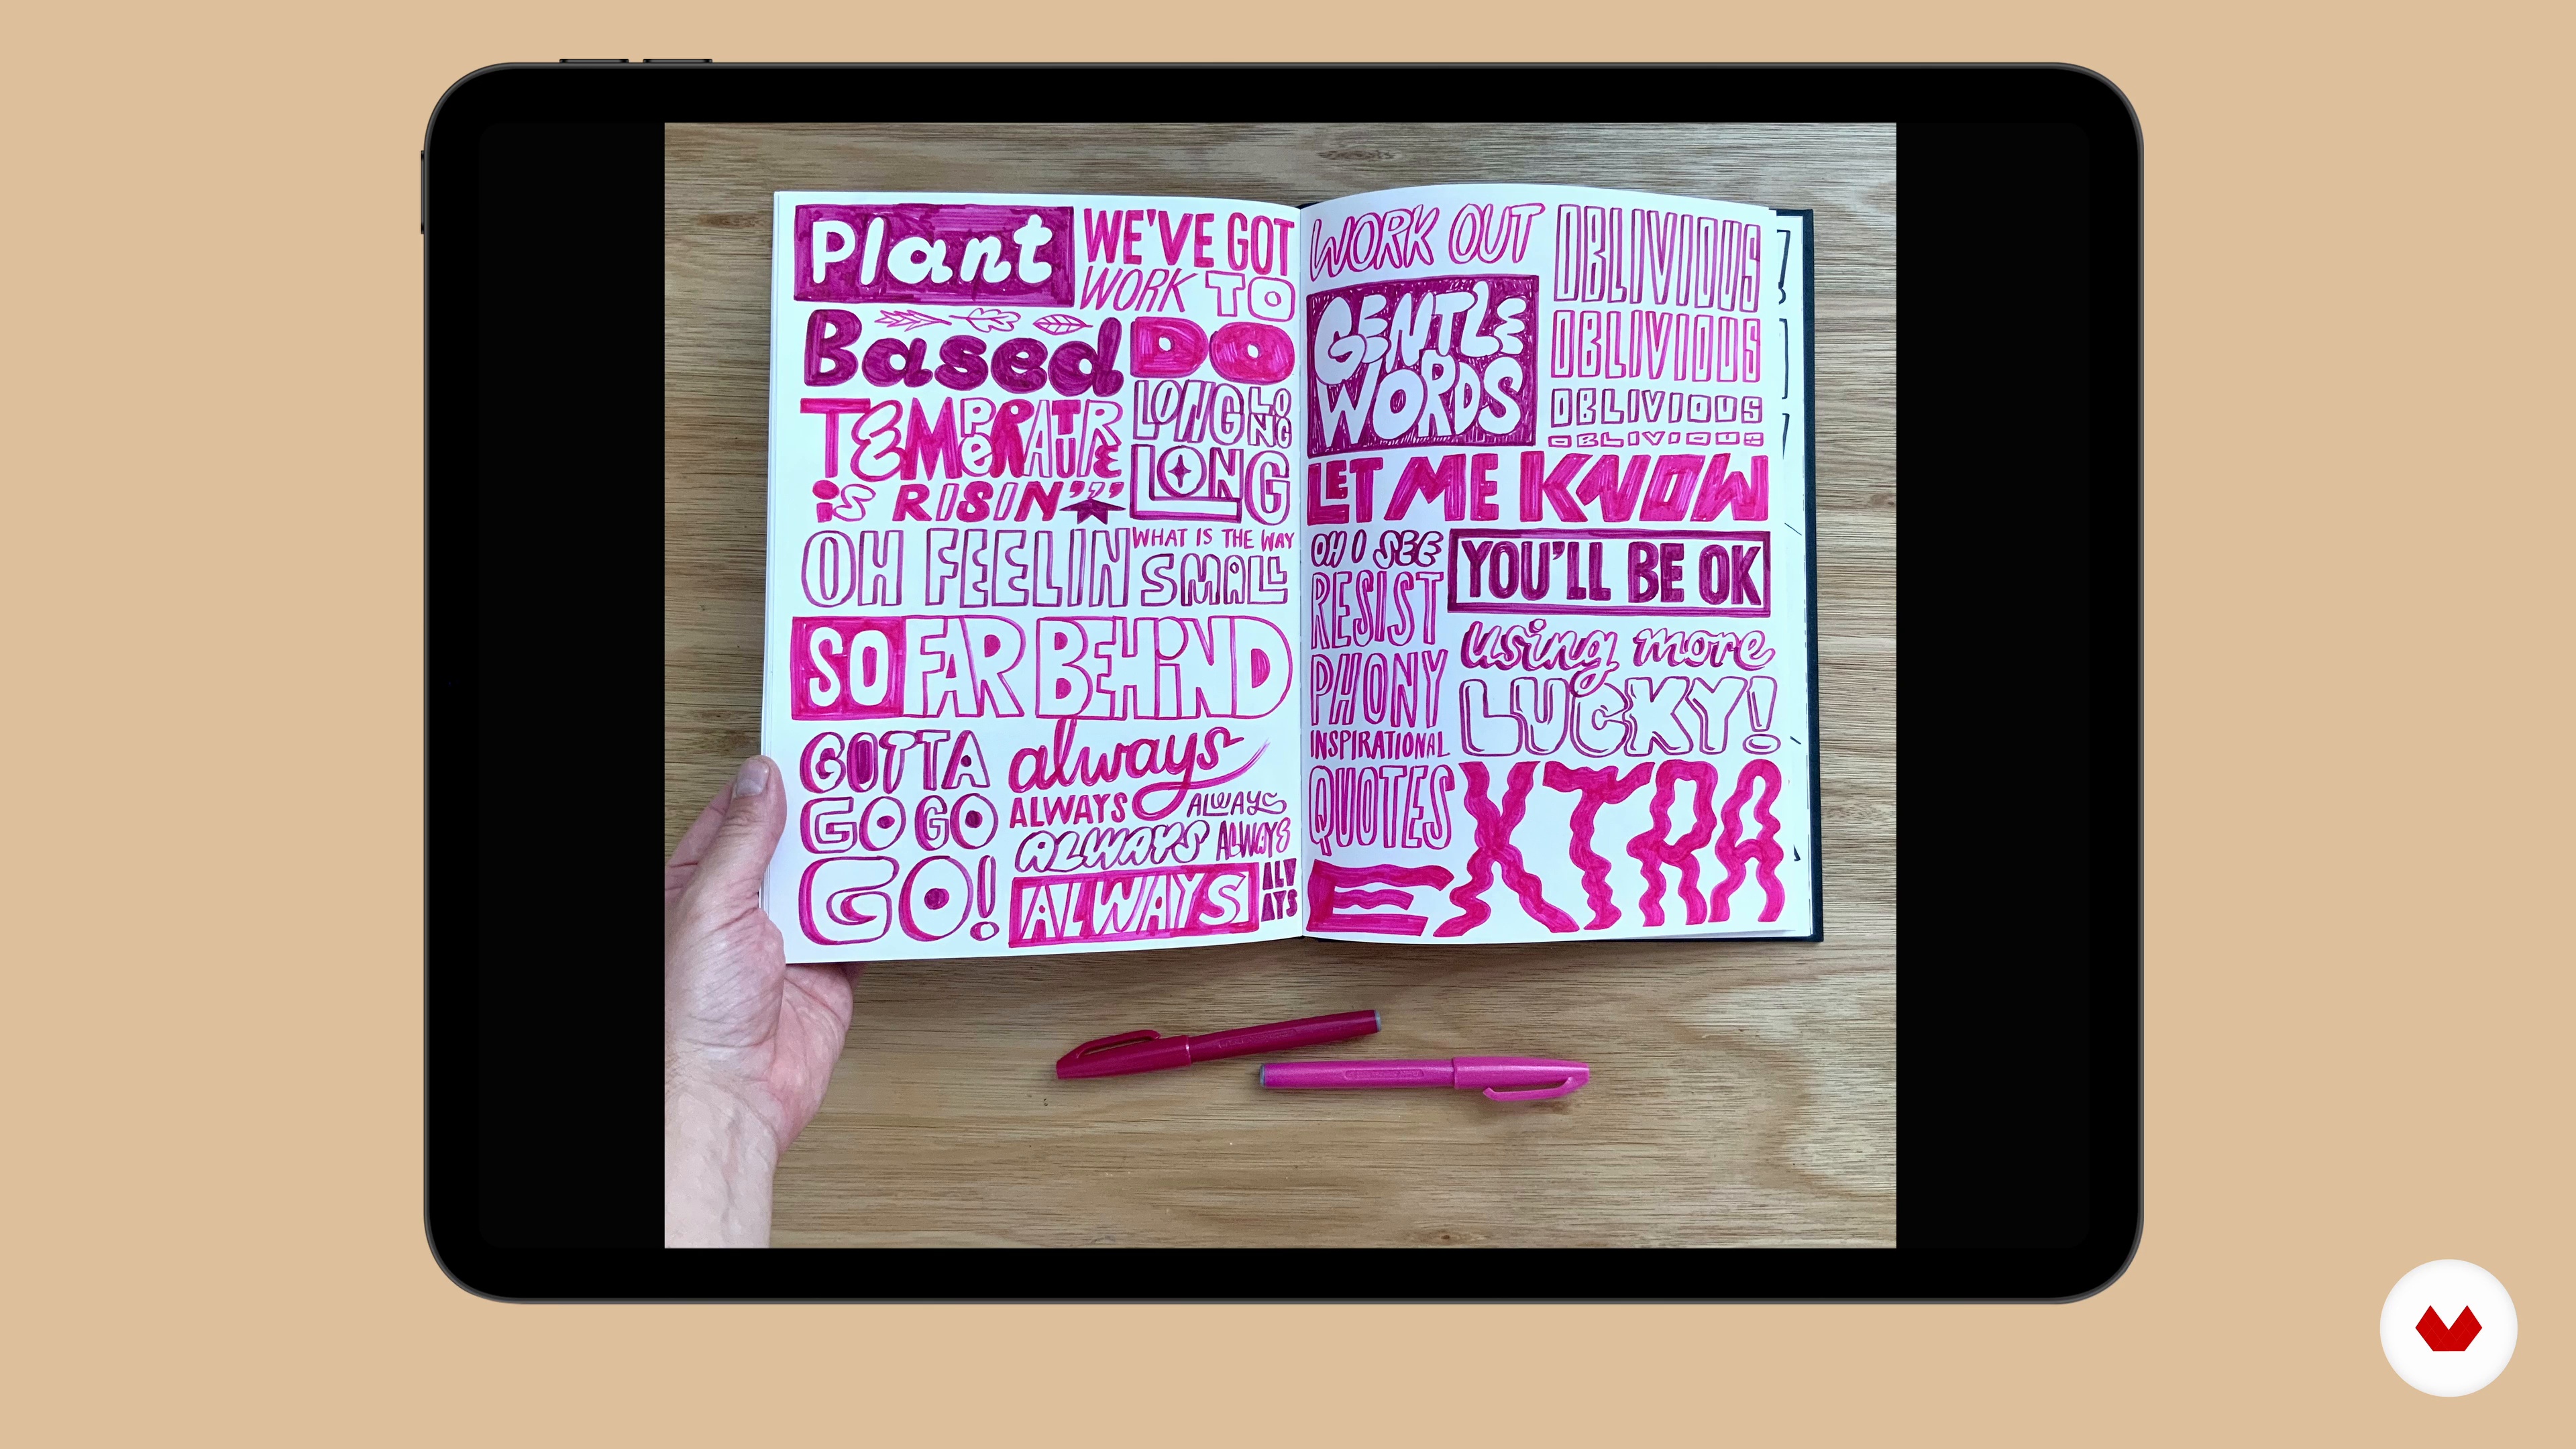 Plant
Based
WE'VE GOT
WORK TO
DO
TEMPERATURE
iS RISIN'''
LONG LONG
LONG
OH FEELIN
WHAT IS THE WAY
SMALL
SO FAR BEHiND
GOTTA
GO GO
GO!
always
ALWAYS ALWAYS
ALWAYS ALWAYS
ALWAYS
WORK OUT
GENTLE
WORDS
OBLIVIOUS
OBLIVIOUS
OBLIVIOUS
OBLIVIOUS
LET ME KNOW
OH I SEE
RESIST
PHONY
INSPIRATIONAL
QUOTES
YOU'LL BE OK
using more
LUCKY!
EXTRA